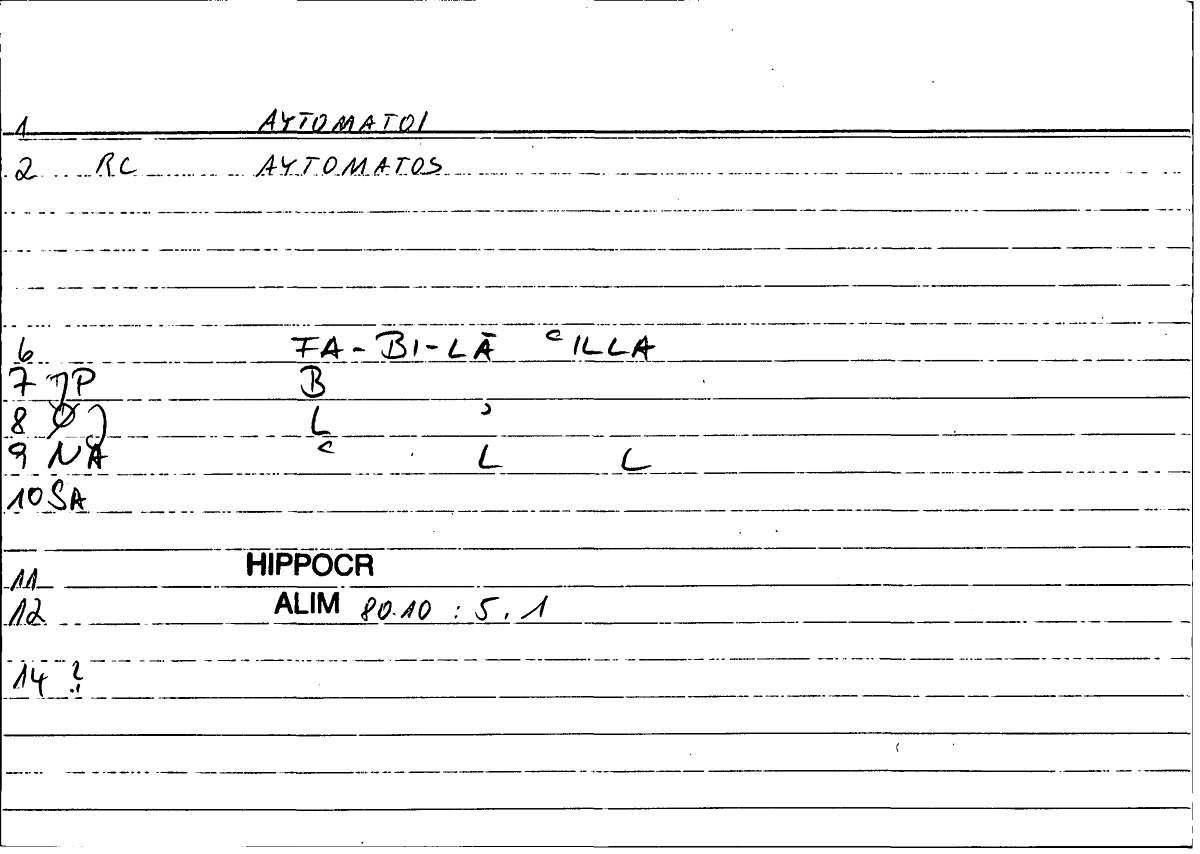 1 AYTOMATOI
2 RC AYTOMATOS
6 FA-BI-LĀ ᶜILLA
7 JP B
8 Ø) L ʾ
9 NA ᶜ L L
10 SA
11 HIPPOCR
12 ALIM 80.10 : 5. 1
14 ?